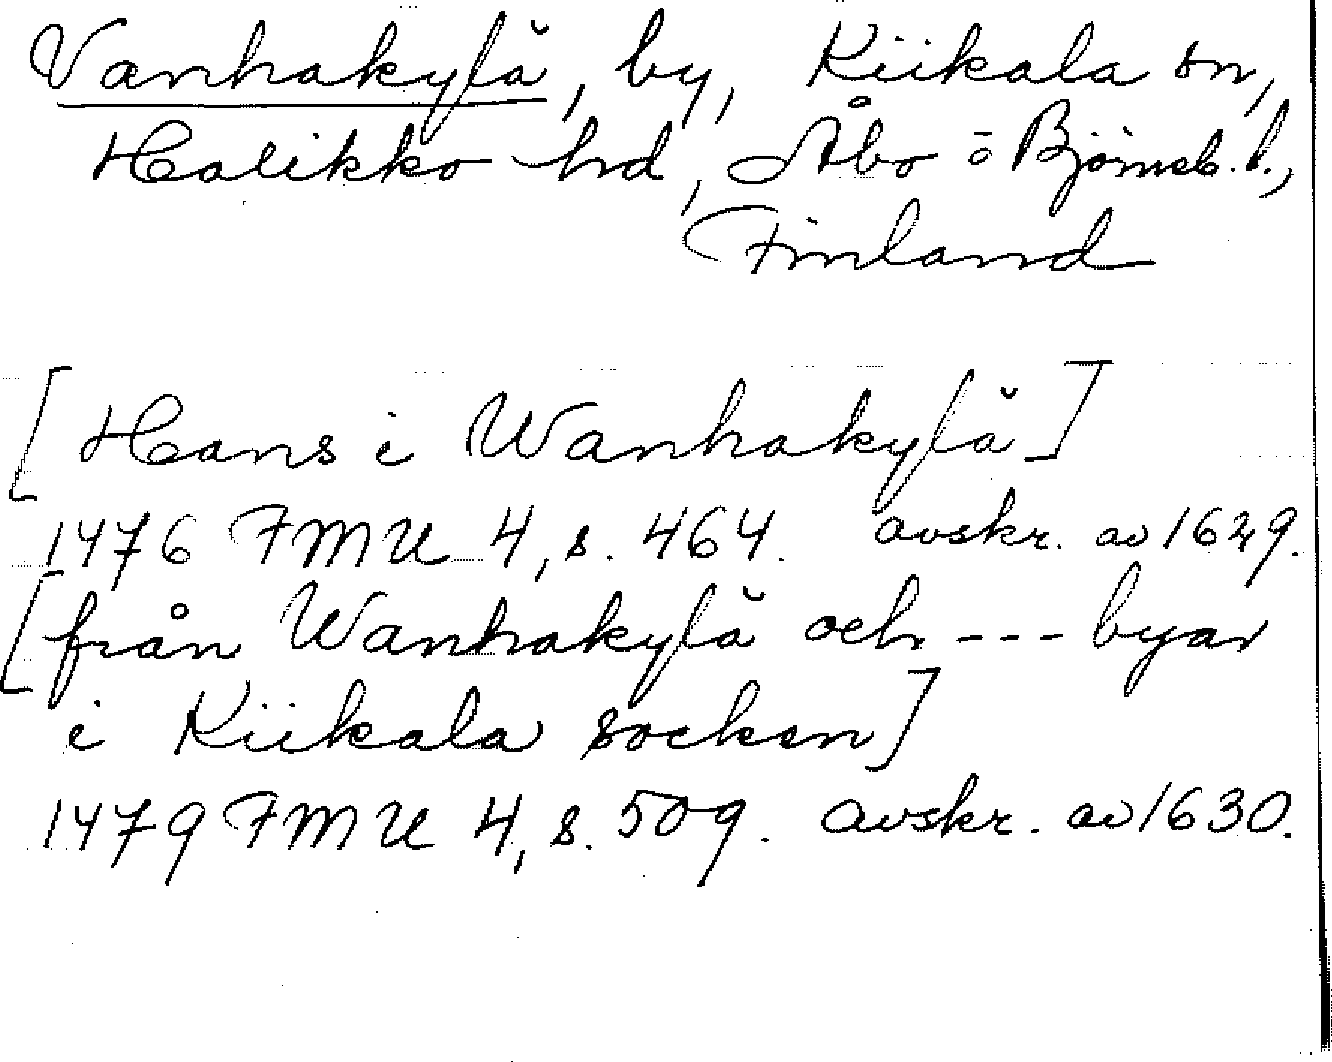 Vanhakylä, by, Kiikala sn,
Halikko hd, Åbo o Björneb. l.,
Finland
[Hans i Wanhakylä]
1476 FMU 4, s. 464. avskr. av 1629.
[från Wanhakylä och --- byar
i Kiikala socken]
1479 FMU 4, s. 509. avskr. av 1630.